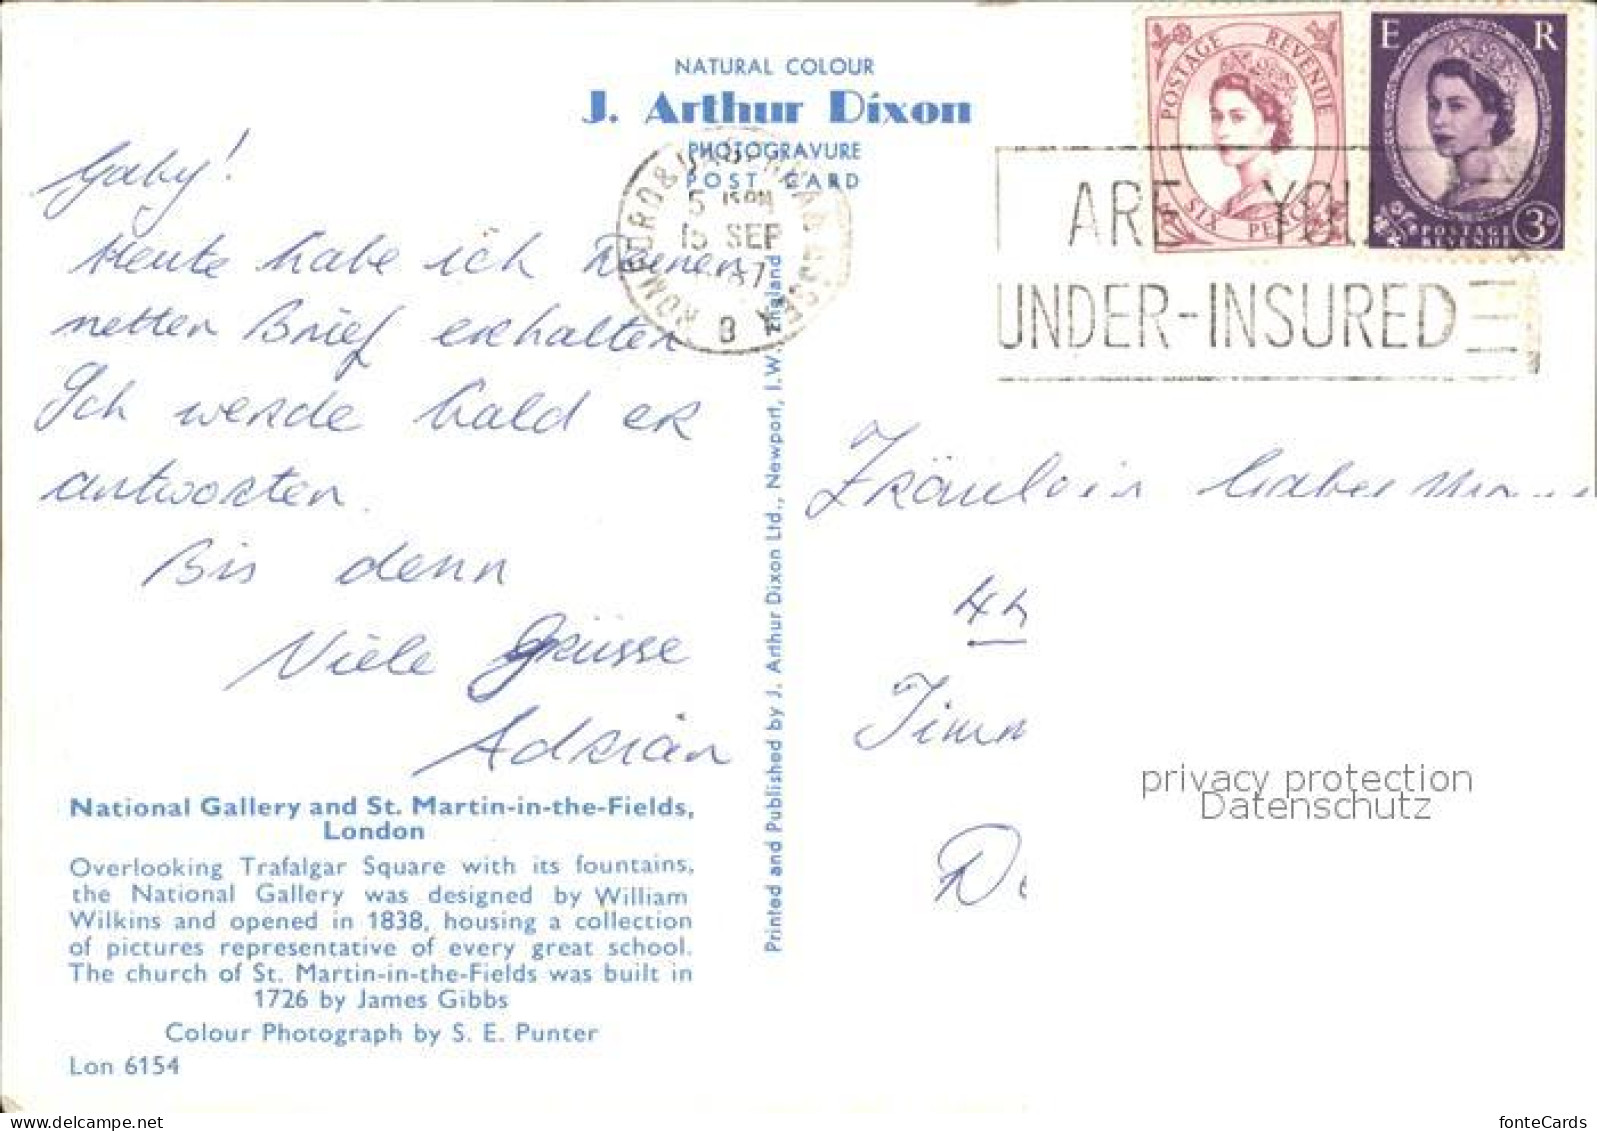 NATURAL COLOUR
J. Arthur Dixon
PHOTOGRAVURE
POST CARD
Gaby!
Heute habe ich Deinen
netten Brief erhalten
Ich werde bald er
antworten.
Bis denn
Viele Grüsse
Adrian
National Gallery and St. Martin-in-the-Fields,
London
Overlooking Trafalgar Square with its fountains,
the National Gallery was designed by William
Wilkins and opened in 1838, housing a collection
of pictures representative of every great school.
The church of St. Martin-in-the-Fields was built in
1726 by James Gibbs
Colour Photograph by S. E. Punter
Lon 6154
Printed and Published by J. Arthur Dixon Ltd., Newport, I.W., England
ROMFORD &
ESSEX
B
5
15 SEP
POSTAGE REVENUE
SIX PENCE
E R
POSTAGE
REVENUE
3D
ARE YOU
UNDER-INSURED
Fräulein
privacy protection
Datenschutz
fonteCards